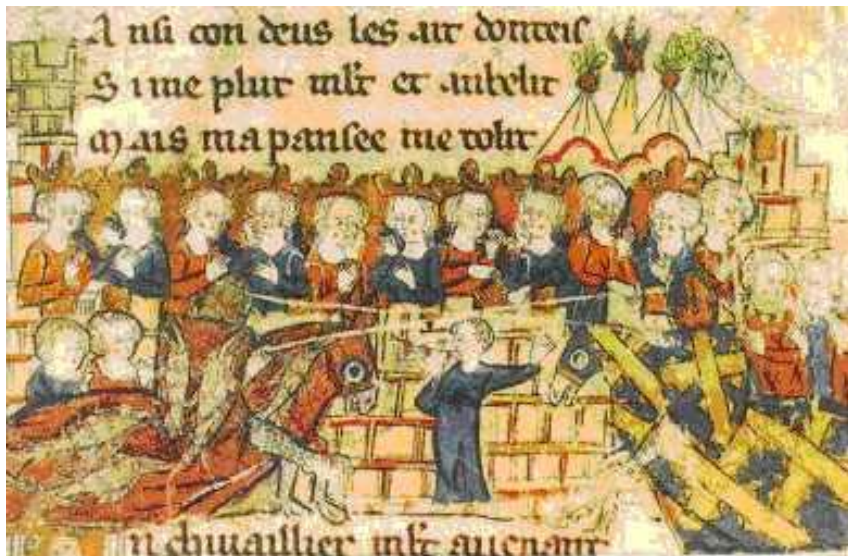 A nsi con deus les ait donteis
S i me plut mlt et anbelit
M ais ma pansee me tolit
n chivaillier mlt